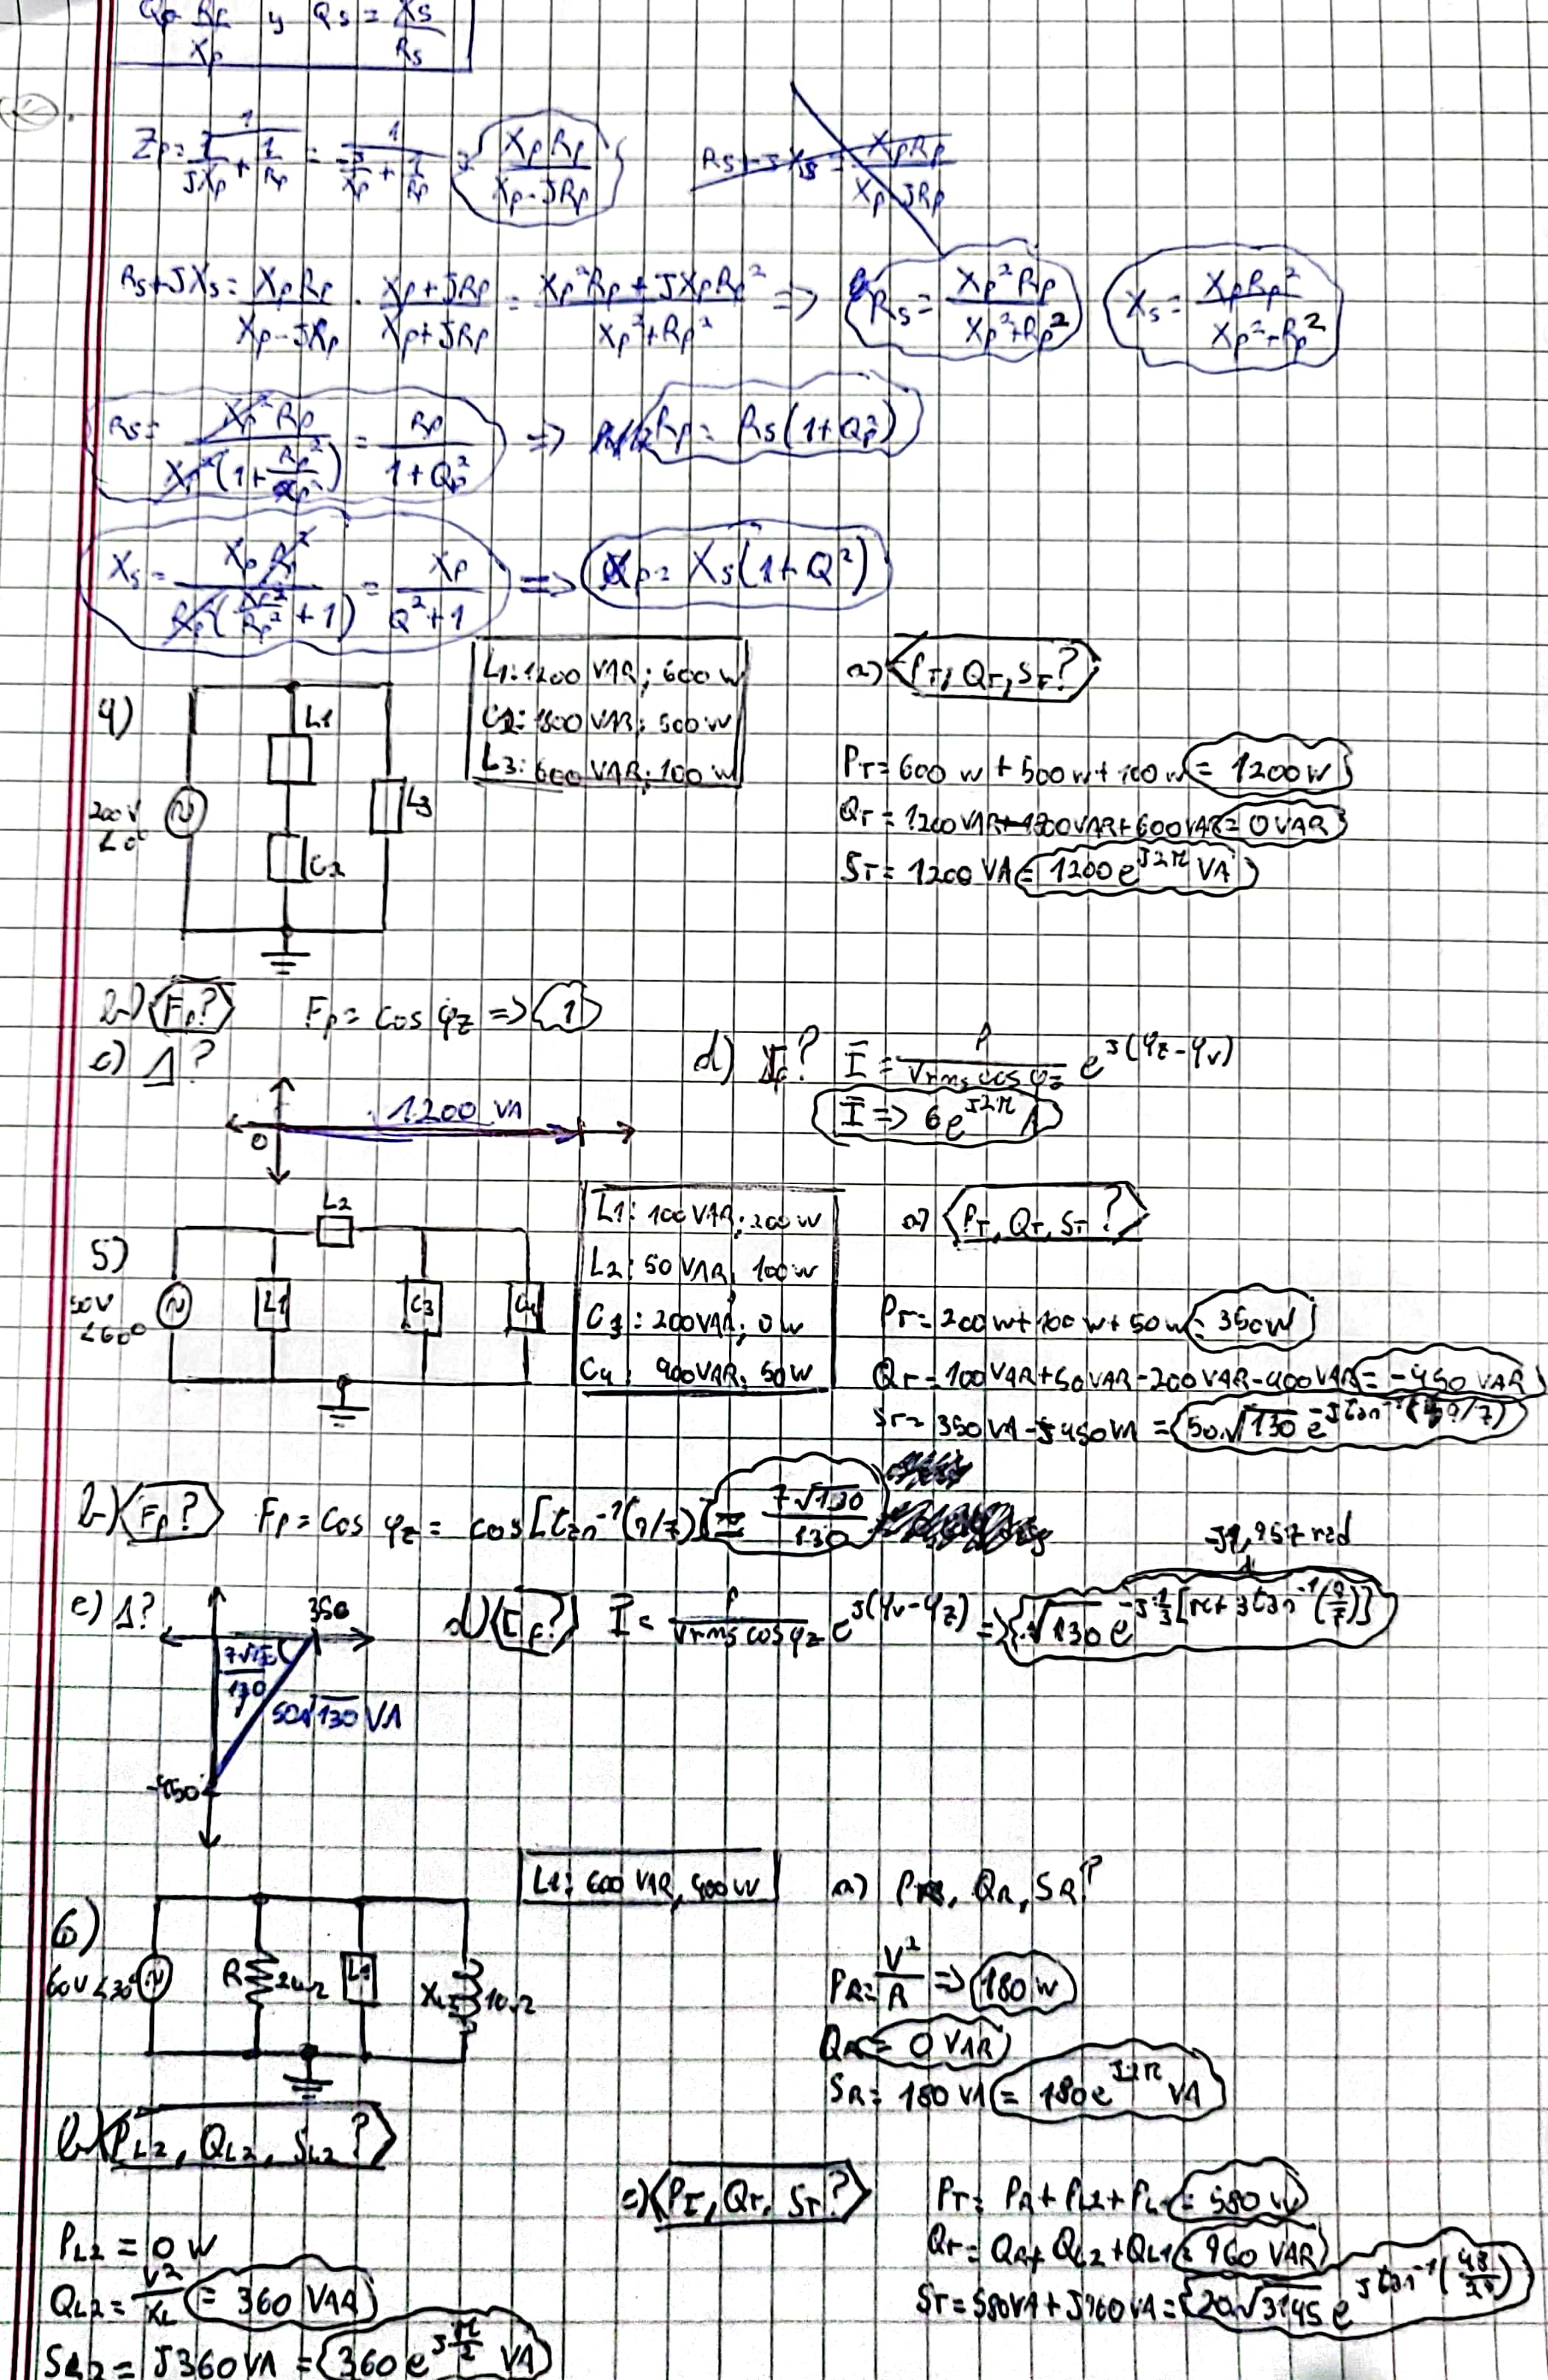 Qp = Rp/Xp y Qs = Xs/Rs
Zp = 1/(1/JXp + 1/Rp) = 1/(-J/Xp + 1/Rp) = XpRp/(Xp-JRp)
Rs+JXs = XpRp/(Xp-JRp)
Rs+JXs = XpRp/(Xp-JRp) · (Xp+JRp)/(Xp+JRp) = (Xp²Rp+JXpRp²)/(Xp²+Rp²) => Rs = Xp²Rp/(Xp²+Rp²) Xs = XpRp²/(Xp²+Rp²)
Rs = Xp²Rp/(Xp²(1+Rp²/Xp²)) = Rp/(1+Qp²) => Rp = Rs(1+Qp²)
Xs = XpRp²/(Rp²(Xp²/Rp²+1)) = Xp/(Q²+1) => Xp = Xs(1+Q²)
4)
L1
C2
L3
200V
∠0°
L1: 1200 VAR; 600 W
C2: 1800 VAR; 500 W
L3: 600 VAR; 100 W
a) PT, QT, ST?
PT = 600 W + 500 W + 100 W = 1200 W
QT = 1200 VAR - 1800 VAR + 600 VAR = 0 VAR
ST = 1200 VA = 1200 e^J2π VA
b) Fp? Fp = cos φz => 1
c) Δ?
0
1200 VA
d) If? I = P/(Vrms cos φz) e^J(φz-φv)
I => 6e^J2π A
5)
50V
∠60°
L1
L2
C3
C4
L1: 100 VAR; 200 W
L2: 50 VAR; 100 W
C3: 200 VAR; 0 W
C4: 400 VAR; 50 W
a) PT, QT, ST?
PT = 200 W + 100 W + 50 W = 350 W
QT = 100 VAR + 50 VAR - 200 VAR - 400 VAR = -450 VAR
ST = 350 VA - J450 VA = 50√130 e^-J tan⁻¹(9/7)
b) Fp? Fp = cos φz = cos[tan⁻¹(9/7)] = 7√130/130
c) Δ?
350
7√130/130
50√130 VA
-450
d) If? I = P/(Vrms cos φz) e^J(φv-φz) => √130 e^-J1/3[π+3tan⁻¹(9/7)]
6)
60V ∠30°
R
L1
XL
10Ω
L1: 600 VAR, 400 W
a) PR, QR, SR?
PR = V²/R => 180 W
QR = 0 VAR
SR = 180 VA = 180e^J2π VA
b) PL2, QL2, SL2?
PL2 = 0 W
QL2 = V²/XL = 360 VAR
SL2 = J360 VA = 360 e^Jπ/2 VA
c) PT, QT, ST?
PT = PR + PL2 + PL1 = 580 W
QT = QR + QL2 + QL1 = 960 VAR
ST = 580 VA + J960 VA = 20√3145 e^J tan⁻¹(48/29)